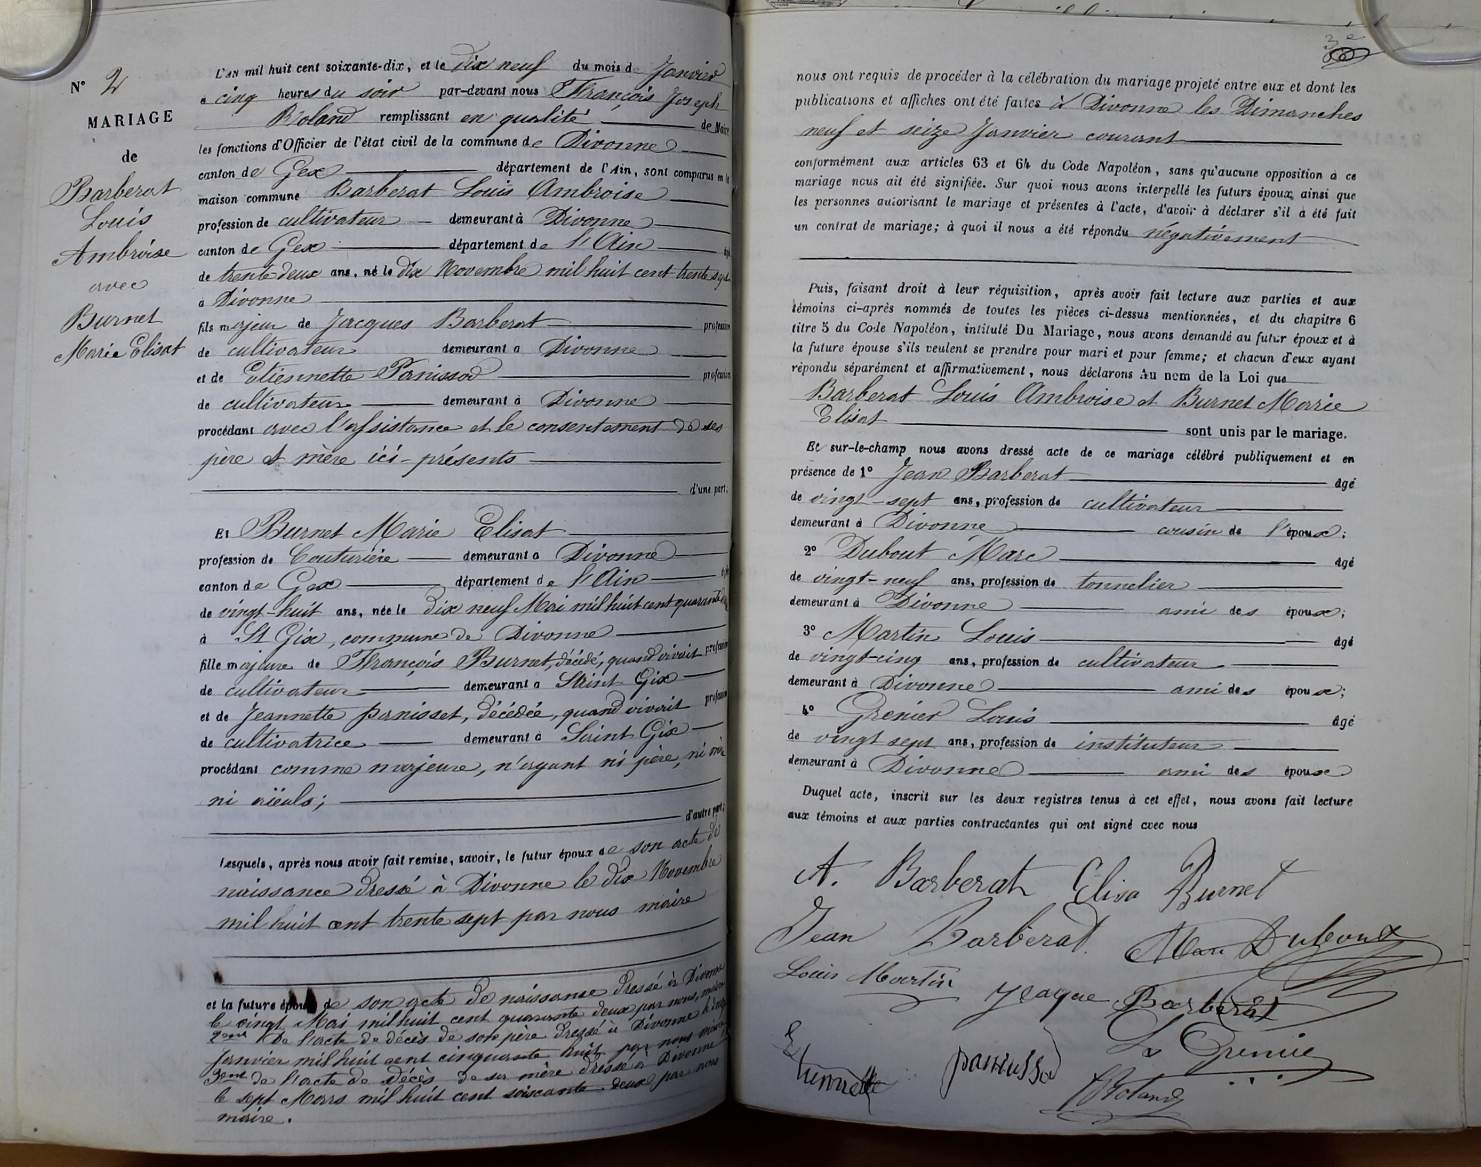 N° 2
MARIAGE
de
Barberat
Louis
Ambroise
avec
Burnet
Marie Elisat
L'AN mil huit cent soixante-dix, et le dix neuf du mois de Janvier
a cinq heures du soir par-devant nous François Joseph
Roland remplissant en qualité de Maire
les fonctions d'Officier de l'état civil de la commune de Divonne
canton de Gex département de l'Ain, sont comparus en la
maison commune Barberat Louis Ambroise
profession de cultivateur demeurant à Divonne
canton de Gex département de l'Ain âgé
de trente deux ans, né le dix Novembre mil huit cent trente sept
à Divonne
fils majeur de Jacques Barberat profession
de cultivateur demeurant à Divonne
et de Etiennette Panissod profession
de cultivateur demeurant à Divonne
procédant avec l'assistance et le consentement de ses
père et mère ici-présents
d'une part;
Et Burnet Marie Elisat
profession de Couturière demeurant à Divonne
canton de Gex département de l'Ain âgée
de vingt-huit ans, née le dix neuf Mai mil huit cent quarante
à St Gix, commune de Divonne
fille majeure de François Burnet, décédé, quand vivait profession
de cultivateur demeurant à Saint Gix
et de Jeannette panisset, décédée, quand vivait profession
de cultivatrice demeurant à Saint Gix
procédant comme majeure, n'ayant ni père, ni mère
ni aïeuls;
d'autre part;
Lesquels, après nous avoir fait remise, savoir, le futur époux de son acte de
naissance dressé à Divonne le dix Novembre
mil huit cent trente sept par nous maire
et la future épouse de son acte de naissance dressé à Divonne
le vingt Mai mil huit cent quarante deux par nous, maire
2ment De l'acte de décès de son père dressé à Divonne le
Janvier mil huit cent cinquante huit par nous maire
3ent de l'acte de décès de sa mère dressé à Divonne
le sept Mars mil huit cent soixante-deux par nous
maire.
nous ont requis de procéder à la célébration du mariage projeté entre eux et dont les
publications et affiches ont été faites à Divonne les Dimanches
neuf et seize Janvier courant
conformément aux articles 63 et 64 du Code Napoléon, sans qu'aucune opposition à ce
mariage nous ait été signifiée. Sur quoi nous avons interpellé les futurs époux, ainsi que
les personnes autorisant le mariage et présentes à l'acte, d'avoir à déclarer s'il a été fait
un contrat de mariage; à quoi il nous a été répondu négativement
Puis, faisant droit à leur réquisition, après avoir fait lecture aux parties et aux
témoins ci-après nommés de toutes les pièces ci-dessus mentionnées, et du chapitre 6
titre 5 du Code Napoléon, intitulé Du Mariage, nous avons demandé au futur époux et à
la future épouse s'ils veulent se prendre pour mari et pour femme; et chacun d'eux ayant
répondu séparément et affirmativement, nous déclarons au nom de la Loi que
Barberat Louis Ambroise et Burnet Marie
Elisat sont unis par le mariage.
Et sur-le-champ nous avons dressé acte de ce mariage célébré publiquement et en
présence de 1° Jean Barberat âgé
de vingt-sept ans, profession de cultivateur
demeurant à Divonne cousin de l'époux;
2° Dubout Marc âgé
de vingt-neuf ans, profession de tonnelier
demeurant à Divonne ami des époux;
3° Martin Louis âgé
de vingt-cinq ans, profession de cultivateur
demeurant à Divonne ami des époux;
4° Grenier Louis âgé
de vingt sept ans, profession de instituteur
demeurant à Divonne ami des époux
Duquel acte, inscrit sur les deux registres tenus à cet effet, nous avons fait lecture
aux témoins et aux parties contractantes qui ont signé avec nous
A. Barberat Elisa Burnet
Jean Barberat Marc Dubout
Louis Martin Jeaque Barberat
Ls Grenier
Etiennette panissod
Roland